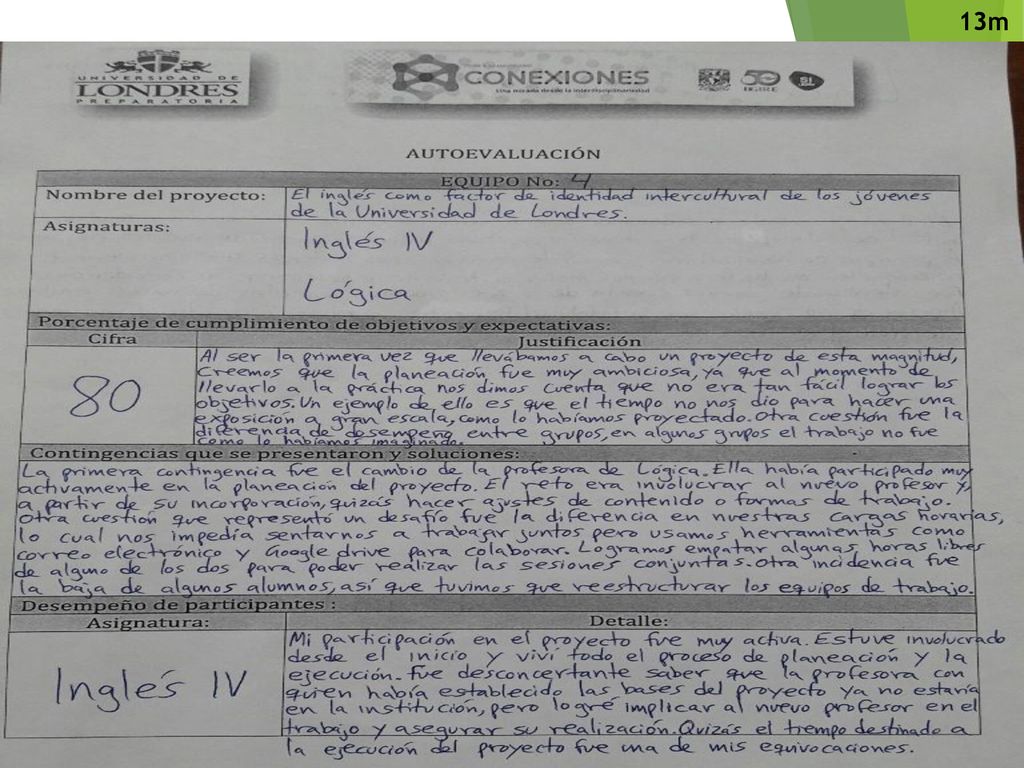 13m
UNIVERSIDAD DE
LONDRES
PREPARATORIA
CONEXIONES
Una mirada desde la interdisciplinariedad
50
SI
AUTOEVALUACIÓN
EQUIPO No: 4
Nombre del proyecto: El inglés como factor de identidad intercultural de los jóvenes
de la Universidad de Londres.
Asignaturas:
Inglés IV
Lógica
Porcentaje de cumplimiento de objetivos y expectativas:
Cifra Justificación
80
Al ser la primera vez que llevábamos a cabo un proyecto de esta magnitud,
Creemos que la planeación fue muy ambiciosa, ya que al momento de
llevarlo a la práctica nos dimos cuenta que no era tan fácil lograr los
objetivos. Un ejemplo de ello es que el tiempo no nos dio para hacer una
exposición a gran escala, como lo habíamos proyectado. Otra cuestión fue la
diferencia de desempeño entre grupos, en algunos grupos el trabajo no fue
como lo habíamos imaginado.
Contingencias que se presentaron y soluciones:
La primera contingencia fue el cambio de la profesora de Lógica. Ella había participado muy
activamente en la planeación del proyecto. El reto era involucrar al nuevo profesor y,
a partir de su incorporación, quizás hacer ajustes de contenido o formas de trabajo.
Otra cuestión que representó un desafío fue la diferencia en nuestras cargas horarias,
lo cual nos impedía sentarnos a trabajar juntos pero usamos herramientas como
correo electrónico y Google drive para colaborar. Logramos empatar algunas horas libres
de alguno de los dos para poder realizar las sesiones conjuntas. Otra incidencia fue
la baja de algunos alumnos, así que tuvimos que reestructurar los equipos de trabajo.
Desempeño de participantes :
Asignatura: Detalle:
Inglés IV
Mi participación en el proyecto fue muy activa. Estuve involucrado
desde el inicio y viví todo el proceso de planeación y la
ejecución. Fue desconcertante saber que la profesora con
quien había establecido las bases del proyecto ya no estaría
en la institución, pero logré implicar al nuevo profesor en el
trabajo y asegurar su realización. Quizás el tiempo destinado a
la ejecución del proyecto fue una de mis equivocaciones.